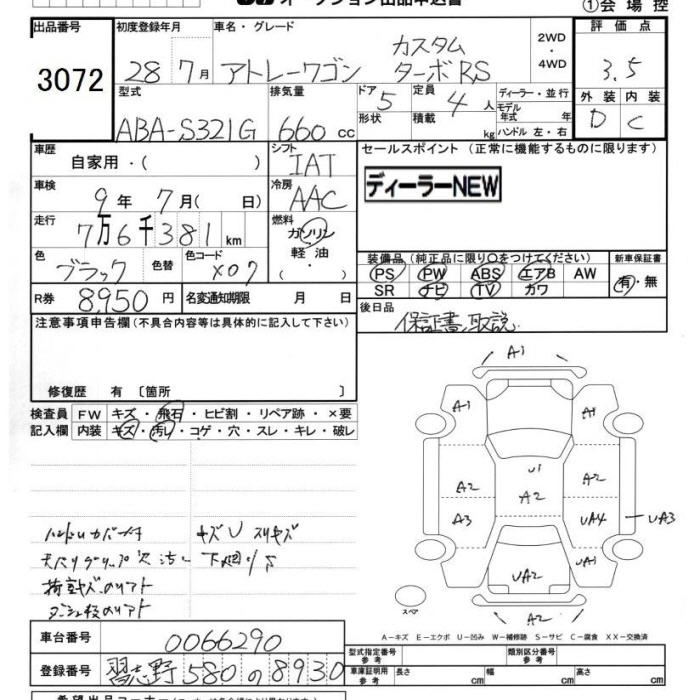 オークション出品申込書
①会場控
出品番号 3072
初度登録年月 28 7月
車名・グレード アトレーワゴン カスタム ターボRS
2WD・4WD
評価点 3.5
外装 D 内装 C
型式 ABA-S321G
排気量 660 cc
ドア 5
形状
定員 4 人
積載 kg
ディーラー・並行
モデル年式 年
ハンドル 左・右
車歴 自家用・( )
シフト IAT
セールスポイント (正常に機能するものに限ります)
ディーラーNEW
車検 9年 7月( 日)
冷房 AAC
走行 7万6千381km
燃料 ガソリン・軽油・( )
色 ブラック 色替 色コード X07
装備品(純正品に限り○をつけてください) 新車保証書
PS PW ABS エアB AW 有・無
SR ナビ TV カワ
R券 8,950 円 名変通知期限 月 日
後日品 保証書、取説
注意事項申告欄(不具合内容等は具体的に記入して下さい)
修復歴 有 〔箇所 〕
検査員記入欄 FW キズ・飛石・ヒビ割・リペア跡・×要
内装 キズ・汚レ・コゲ・穴・スレ・キレ・破レ
キズU スリキズ
下廻りサ
A1
A1 A1
U1
A2 A2 A2
A3 UA4 UA3
UA1
UA2
A2
スペア
A-キズ E-エクボ U-凹み W-補修跡 S-サビ C-腐食 XX-交換済
車台番号 0066290
型式指定番号 参考 類別区分番号 参考
登録番号 習志野 580 の 8930
車庫証明用 参考 長さ cm 幅 cm 高さ cm